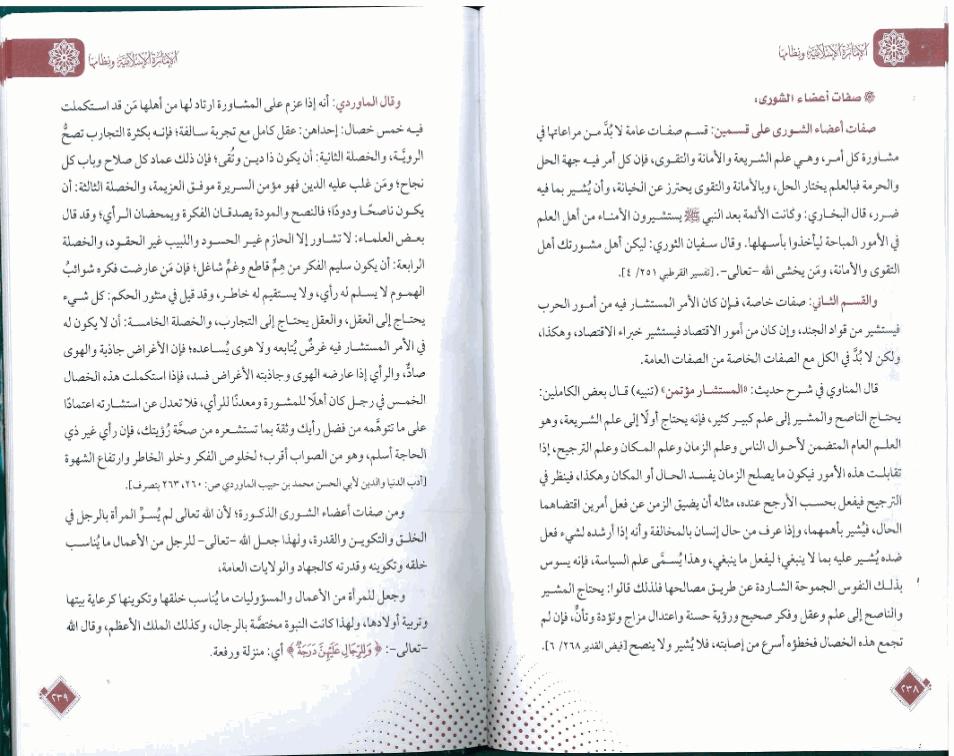 الإمارة الإسلامية ونظامها
صفات أعضاء الشورى:
صفات أعضاء الشورى على قسمين: قسم صفات عامة لا بُدَّ من مراعاتها في
مشاورة كل أمر، وهي علم الشريعة والأمانة والتقوى، فإن كل أمر فيه جهة الحل
والحرمة فبالعلم يختار الحل، وبالأمانة والتقوى يحترز عن الخيانة، وأن يُشير بما فيه
ضرر، قال البخاري: وكانت الأئمة بعد النبي ﷺ يستشيرون الأمناء من أهل العلم
في الأمور المباحة ليأخذوا بأسهلها. وقال سفيان الثوري: ليكن أهل مشورتك أهل
التقوى والأمانة، ومَن يخشى الله -تعالى-. [تفسير القرطبي ٢٥١/ ٤].
والقسم الثاني: صفات خاصة، فإن كان الأمر المستشار فيه من أمور الحرب
فيستشير من قواد الجند، وإن كان من أمور الاقتصاد فيستشير خبراء الاقتصاد، وهكذا،
ولكن لا بُدَّ في الكل مع الصفات الخاصة من الصفات العامة.
قال المناوي في شرح حديث: «المستشار مؤتمن» (تنبيه) قال بعض الكاملين:
يحتاج الناصح والمشير إلى علم كبير كثير، فإنه يحتاج أولًا إلى علم الشريعة، وهو
العلم العام المتضمن لأحوال الناس وعلم الزمان وعلم المكان وعلم الترجيح، إذا
تقابلت هذه الأمور فيكون ما يصلح الزمان يفسد الحال أو المكان وهكذا، فينظر في
الترجيح فيفعل بحسب الأرجح عنده، مثاله أن يضيق الزمن عن فعل أمرين اقتضاهما
الحال، فيُشير بأهمهما، وإذا عرف من حال إنسان بالمخالفة وأنه إذا أرشده لشيء فعل
ضده يُشير عليه بما لا ينبغي؛ ليفعل ما ينبغي، وهذا يُسمَّى علم السياسة، فإنه يسوس
بذلك النفوس الجموحة الشاردة عن طريق مصالحها فلذلك قالوا: يحتاج المشير
والناصح إلى علم وعقل وفكر صحيح ورؤية حسنة واعتدال مزاج وتؤدة وتأنٍّ، فإن لم
تجمع هذه الخصال فخطؤه أسرع من إصابته، فلا يُشير ولا ينصح [فيض القدير ٢٦٨/ ٦].
٢٣٨
الإمارة الإسلامية ونظامها
وقال الماوردي: أنه إذا عزم على المشاورة ارتاد لها من أهلها مَن قد استكملت
فيه خمس خصال: إحداهن: عقل كامل مع تجربة سالفة؛ فإنه بكثرة التجارب تصحُّ
الرويَّة، والخصلة الثانية: أن يكون ذا دين وتُقى؛ فإن ذلك عماد كل صلاح وباب كل
نجاح؛ ومَن غلب عليه الدين فهو مؤمن السريرة موفق العزيمة، والخصلة الثالثة: أن
يكون ناصحًا ودودًا؛ فالنصح والمودة يصدقان الفكرة ويمحضان الرأي؛ وقد قال
بعض العلماء: لا تشاور إلا الحازم غير الحسود واللبيب غير الحقود، والخصلة
الرابعة: أن يكون سليم الفكر من هِمٍّ قاطع وغمٍّ شاغل؛ فإن مَن عارضت فكره شوائبُ
الهموم لا يسلم له رأي، ولا يستقيم له خاطر، وقد قيل في منثور الحكم: كل شيء
يحتاج إلى العقل، والعقل يحتاج إلى التجارب، والخصلة الخامسة: أن لا يكون له
في الأمر المستشار فيه غرضٌ يُتابعه ولا هوى يُساعده؛ فإن الأغراض جاذبة والهوى
صادٌّ، والرأي إذا عارضه الهوى وجاذبته الأغراض فسد، فإذا استكملت هذه الخصال
الخمس في رجل كان أهلًا للمشورة ومعدنًا للرأي، فلا تعدل عن استشارته اعتمادًا
على ما تتوهَّمه من فضل رأيك وثقة بما تستشعره من صحَّة رُؤيتك، فإن رأي غير ذي
الحاجة أسلم، وهو من الصواب أقرب؛ لخلوص الفكر وخلو الخاطر وارتفاع الشهوة
[أدب الدنيا والدين لأبي الحسن محمد بن حبيب الماوردي ص: ٢٦٠، ٢٦٣ بتصرف].
ومن صفات أعضاء الشورى الذكورة؛ لأن الله تعالى لم يُسوِّ المرأة بالرجل في
الخلق والتكوين والقدرة، ولهذا جعل الله -تعالى- للرجل من الأعمال ما يُناسب
خلقه وتكوينه وقدرته كالجهاد والولايات العامة،
وجعل للمرأة من الأعمال والمسؤوليات ما يُناسب خلقها وتكوينها كرعاية بيتها
وتربية أولادها، ولهذا كانت النبوة مختصَّة بالرجال، وكذلك الملك الأعظم، وقال الله
-تعالى-: ﴿وَلِلرِّجَالِ عَلَيْهِنَّ دَرَجَةٌ﴾ أي: منزلة ورفعة.
٢٣٩